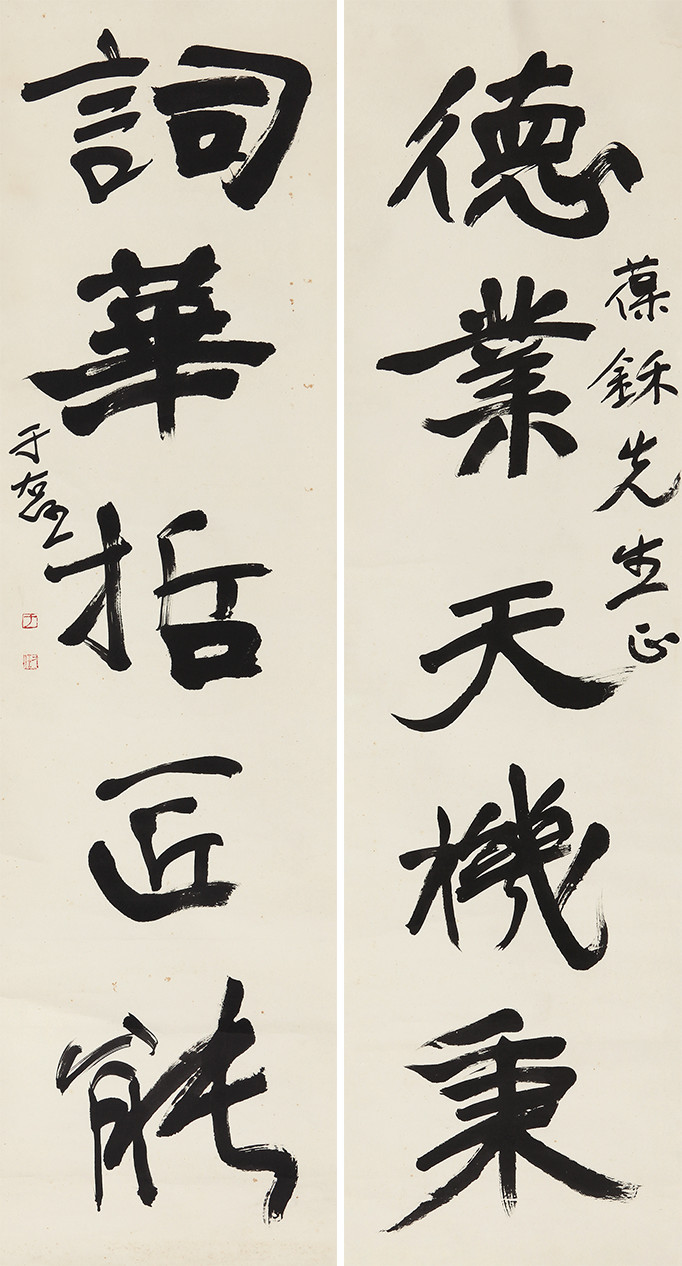 德業天機秉
葆鉌先生正
詞華哲匠能
于右任
于